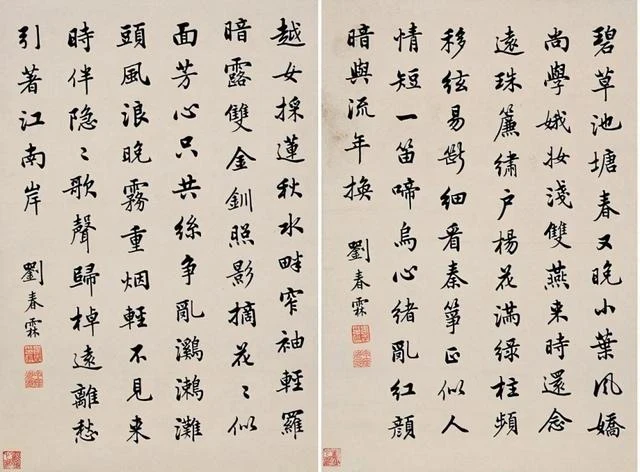 碧草池塘春又晚小葉風嬌
尚學娥妝淺雙燕来時還念
遠珠簾繡户楊花滿緑柱頻
移絃易斷細看秦箏正似人
情短一笛啼烏心緒亂紅顔
暗與流年換
劉春霖
越女採蓮秋水畔窄袖輕羅
暗露雙金釧照影摘花〻似
面芳心只共絲争亂鸂鶒灘
頭風浪晚霧重烟輕不見来
時伴隐〻歌聲歸棹遠離愁
引著江南岸
劉春霖